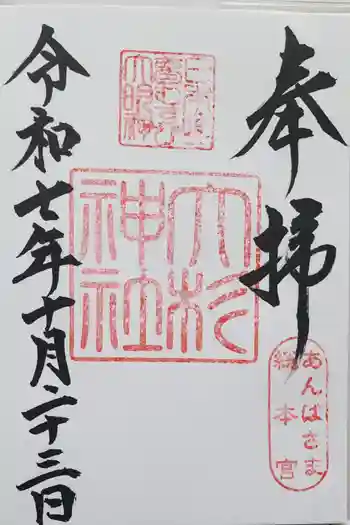 奉拝
大杉
神社
あんばさま
総本宮
令和七年十月二十三日